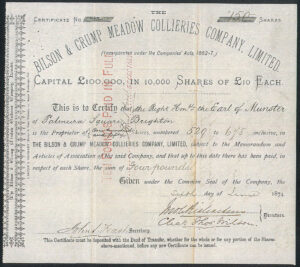 THE
Certificate No. 150 Shares
BILSON & CRUMP MEADOW COLLIERIES COMPANY, LIMITED.
(Incorporated under the Companies' Acts, 1862-7.)
CAPITAL £100,000, IN 10,000 SHARES OF £10 EACH.
This is to Certify that the Right Honble. the Earl of Munster
of Palmeira Square, Brighton
is the Proprietor of Shares, numbered 529 to 678 inclusive, in
THE BILSON & CRUMP MEADOW COLLIERIES COMPANY, LIMITED, subject to the Memorandum and
Articles of Association of the said Company, and that up to this date there has been paid,
in respect of each Share, the sum of Four pounds
Given under the Common Seal of the Company, the
day of June 187
Secretary.
This Certificate must be deposited with the Deed of Transfer, whether for the whole or for any portion of the Shares
above-mentioned, before any new ownership can be registered.
PAID IN FULL